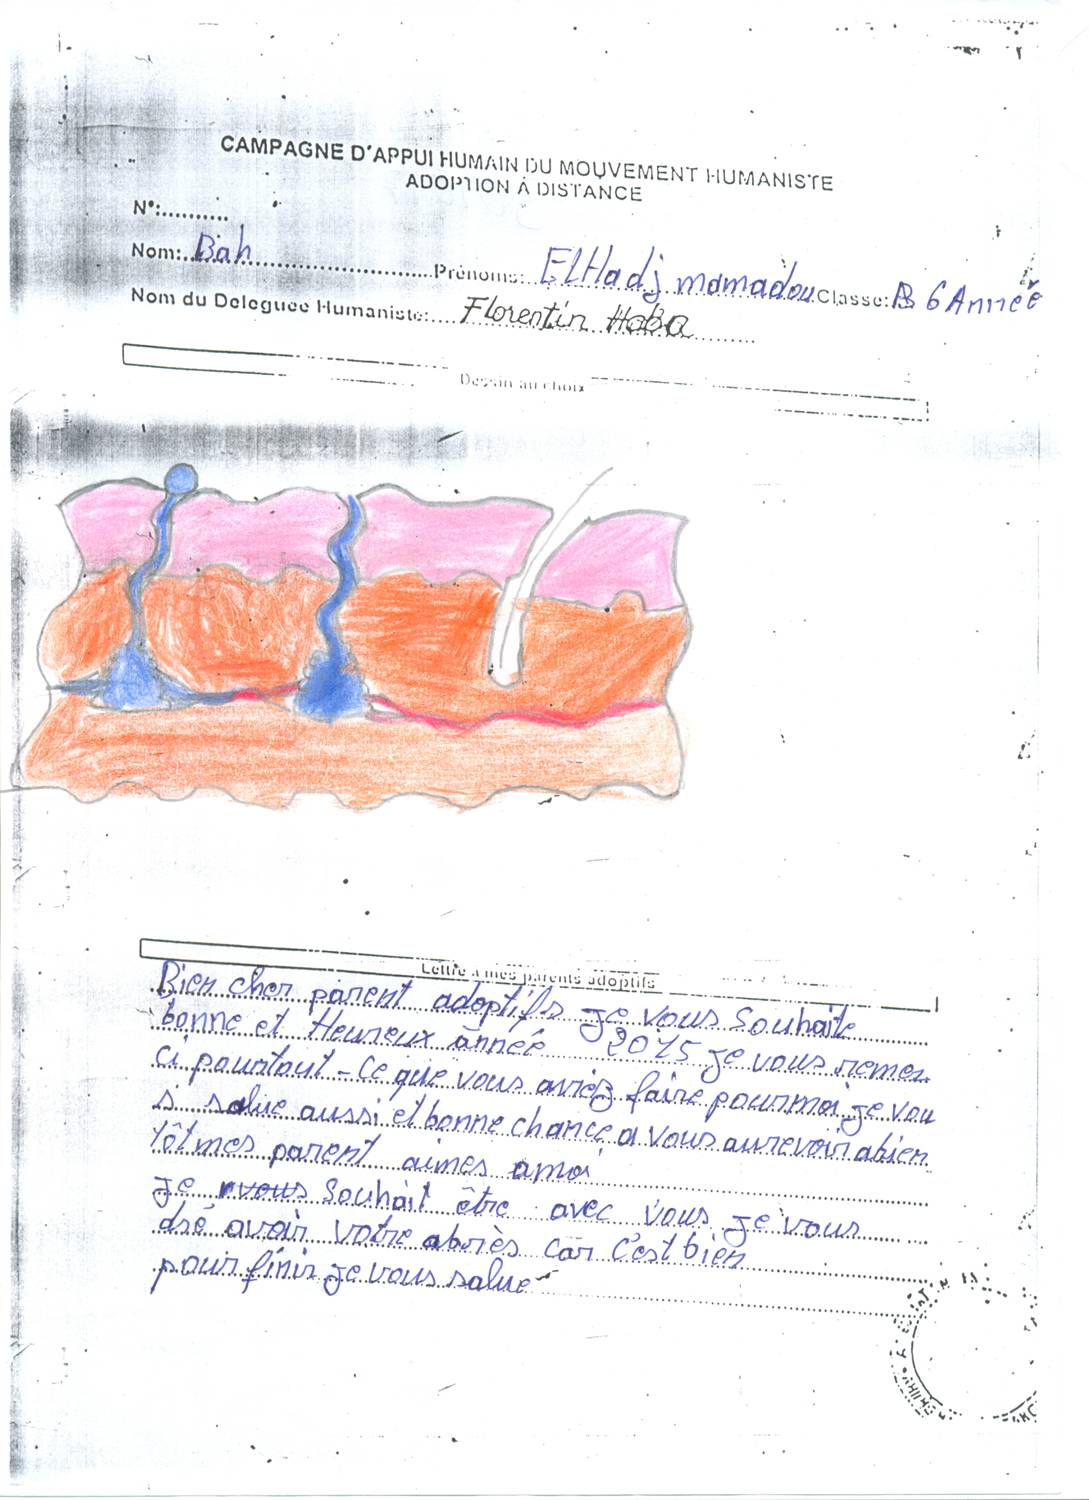 CAMPAGNE D'APPUI HUMAIN DU MOUVEMENT HUMANISTE
ADOPTION À DISTANCE
N°:..........
Nom: Bah Prénoms: ElHadj mamadou Classe: B 6 Année
Nom du Deleguée Humaniste: Florentin Haba
Dessin au choix
Lettre à mes parents adoptifs
Bien cher parent adoptifs je vous souhaite
bonne et Heureux année 2015 je vous remer
ci pourtout - Ce que vous aviez faire pourmoi je vou
s salue aussi et bonne chance a vous aurevoir abien
tôt mes parent aimes amoi
je vous souhait être avec vous je vous
dré avoir votre abriès car c'est bien
pour finir je vous salue